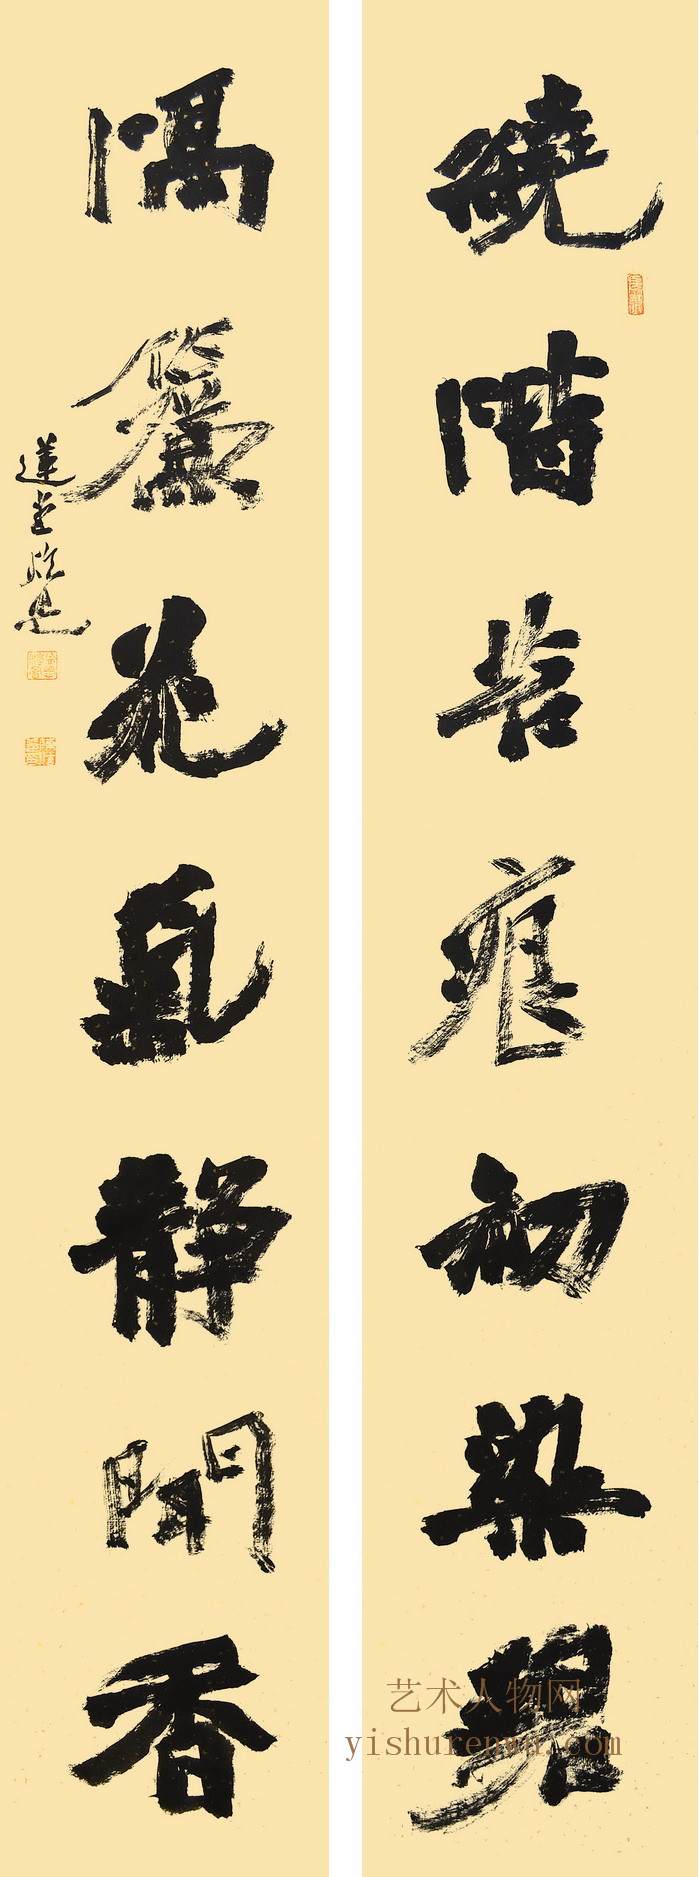 繞階苔痕初染碧
隔簾花氣静聞香
蓮堂
艺术人物网
yishurenwu.com